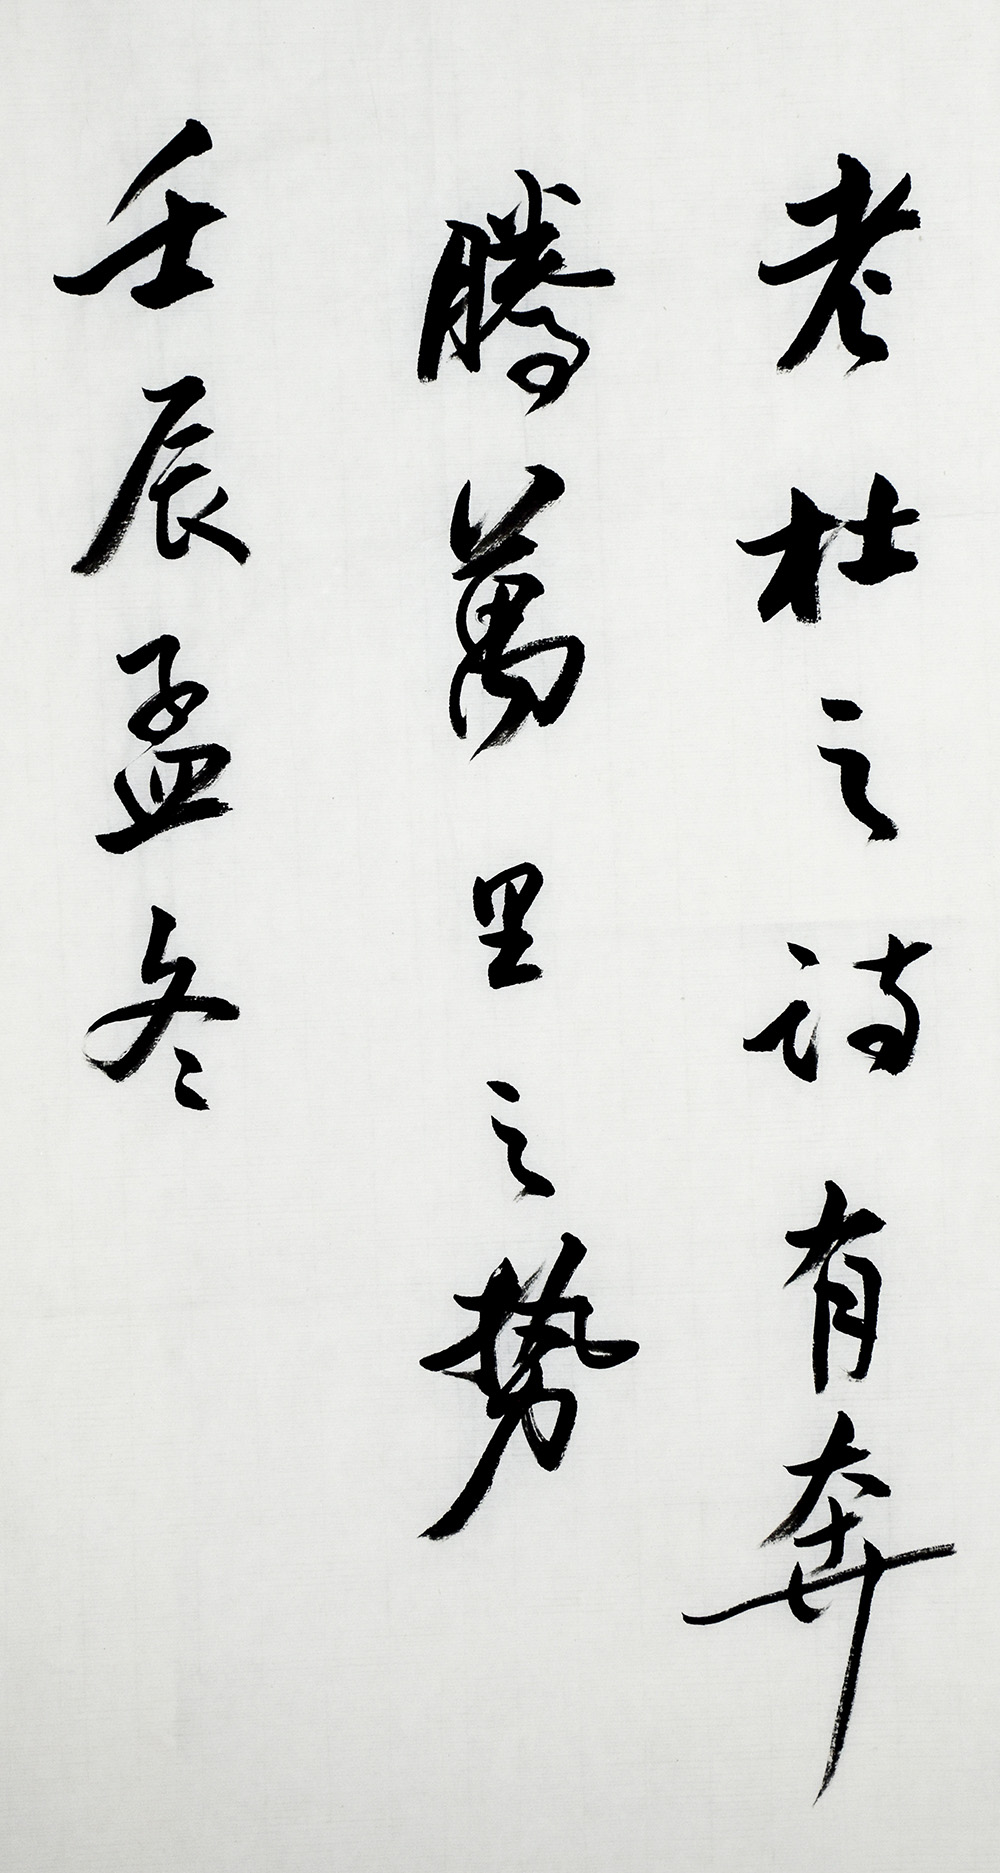 老杜之诗有奔
騰萬里之势
壬辰孟冬